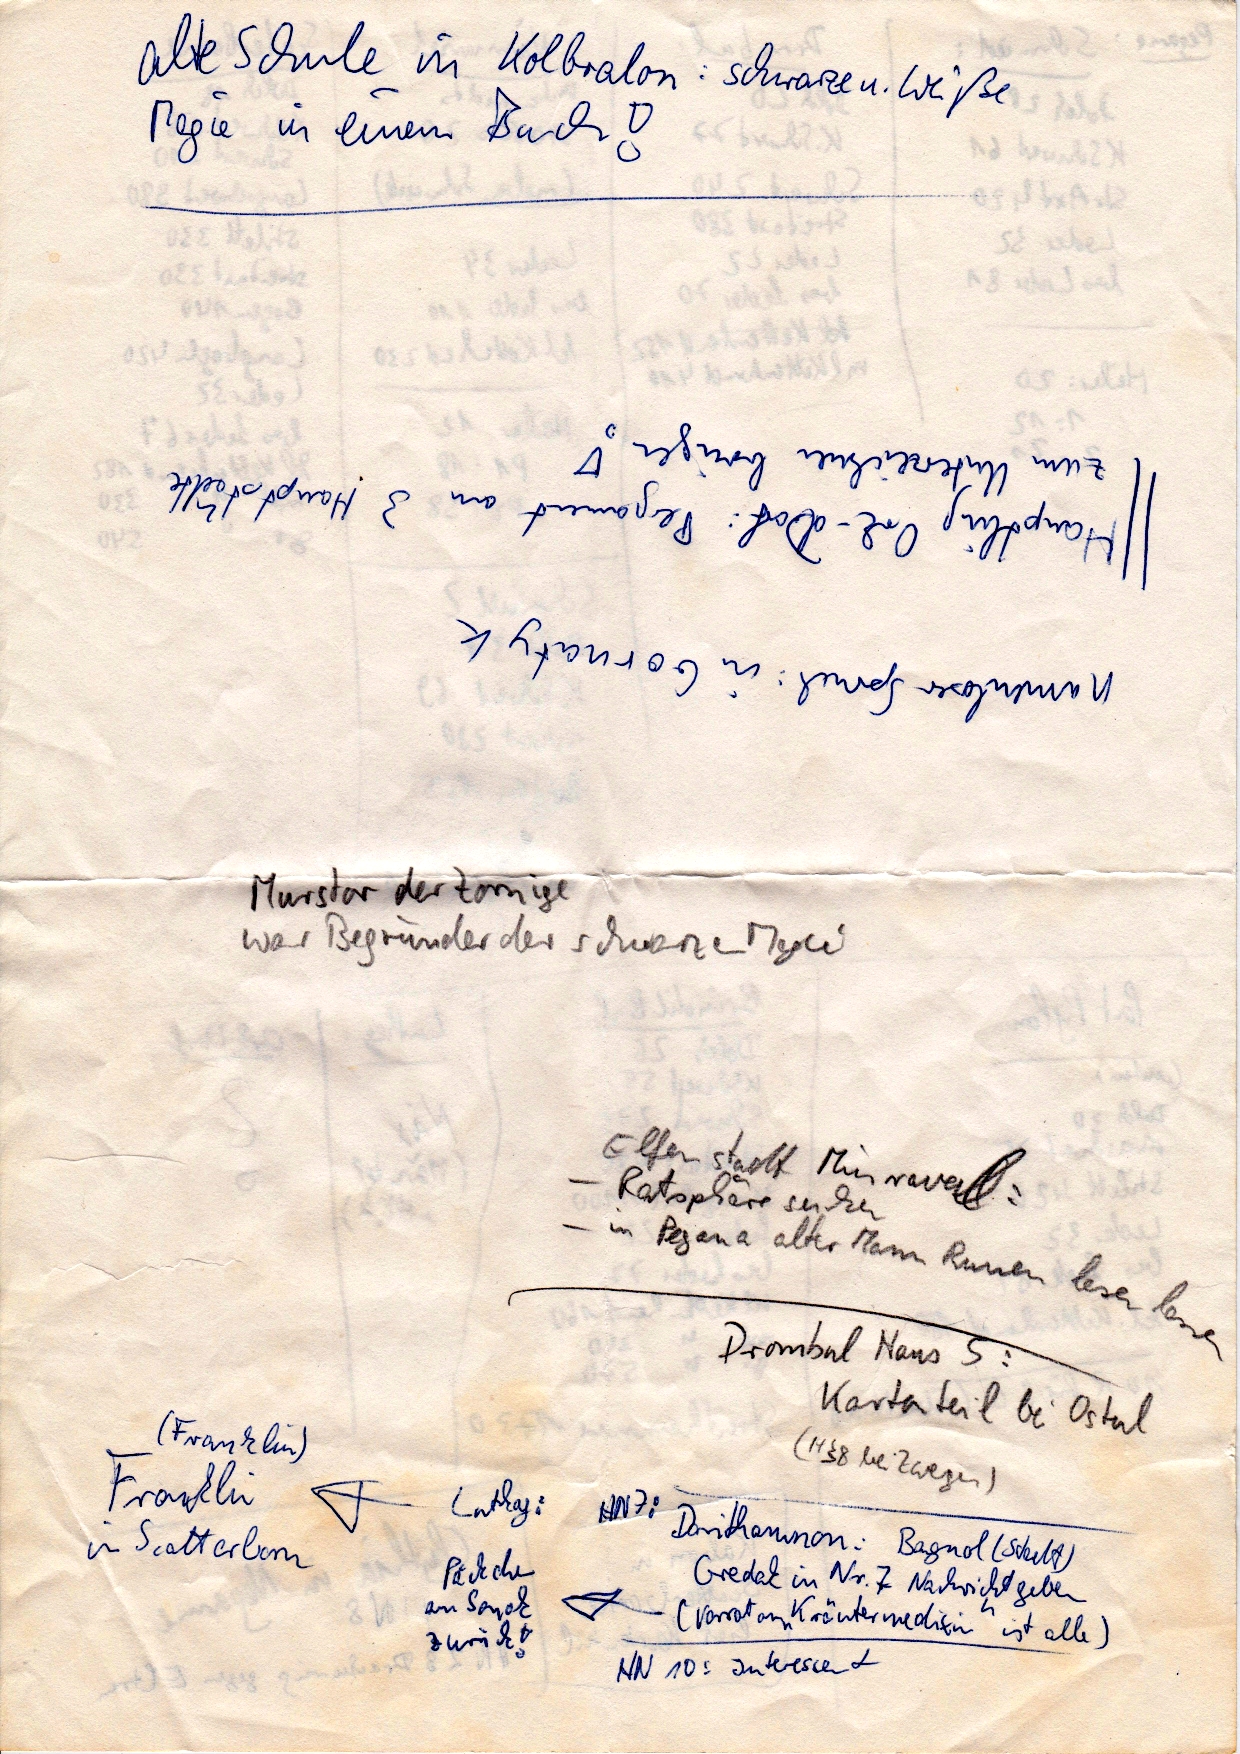 alte Schule in Kolbralon: schwarze u. weiße
Magie in einem Buch!
Häuptling Ork-Dorf: Pergament an 3 Hauptstädte
zum Unterzeichnen bringen!
Namenloser Spruch: in Gornatyk
Murstor der Zornige
war Begründer der schwarze Magie
Elfenstadt Minravell:
- Ratsphäre suchen
- in Pegana alter Mann Runen lesen lassen
Drombal Haus 5:
Kartenteil bei Ostul
(H38 bei Zwergen)
(Franklin)
Franklin
in Scatterborn
Lathag:
Päckchen
an
zurück!
HN7:
Dorithamnon: Bagnol (Stadt)
Gredak in Nr. 7 Nachricht geben
(Vorrat an "Kräutermedizin" ist alle)
HN 10: interessant